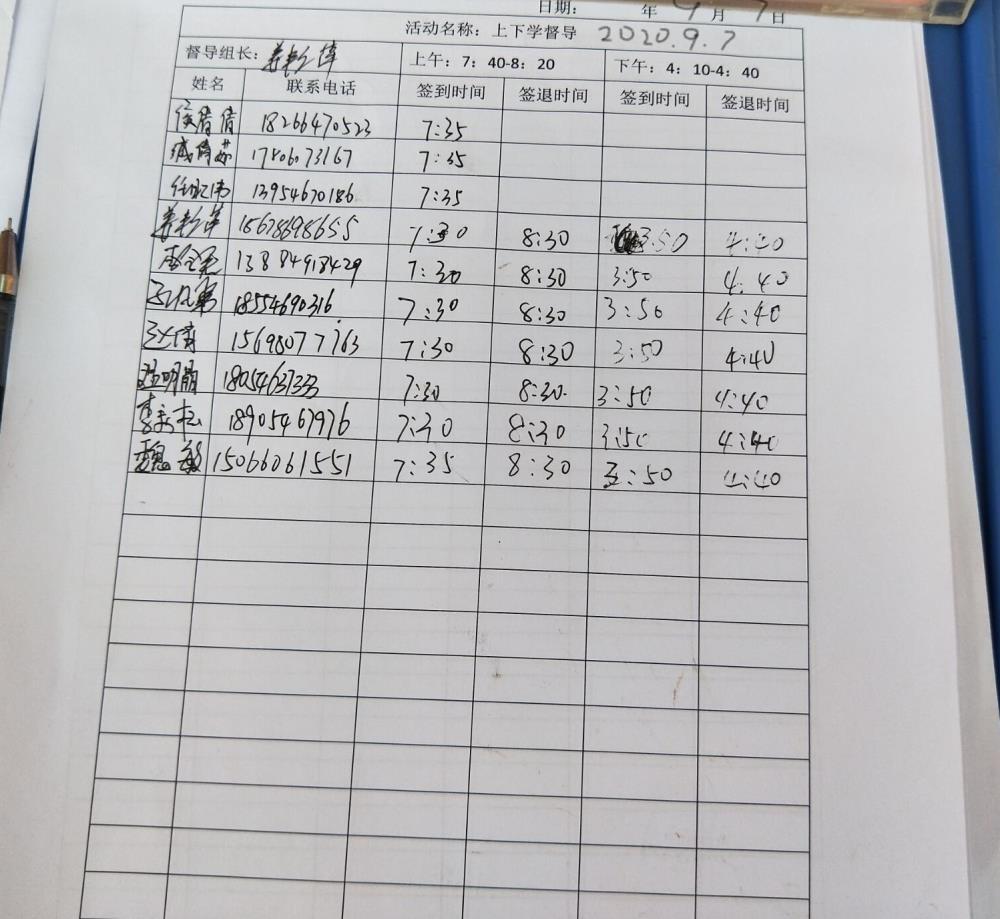 日期： 年 9 月 7 日
活动名称：上下学督导 2020.9.7
督导组长： 上午：7：40-8：20 下午：4：10-4：40
姓名 联系电话 签到时间 签退时间 签到时间 签退时间
侯倩倩 18266470523 7:35
17806073167 7:35
13954670186 7:35
15678698655 7:30 8:30 3:50 4:40
13884918429 7:30 8:30 3:50 4:40
18554690316 7:30 8:30 3:50 4:40
15698077763 7:30 8:30 3:50 4:40
明 7:30 8:30 3:50 4:40
李 松 18905467976 7:30 8:30 3:50 4:40
魏敏 15066061551 7:35 8:30 3:50 4:40